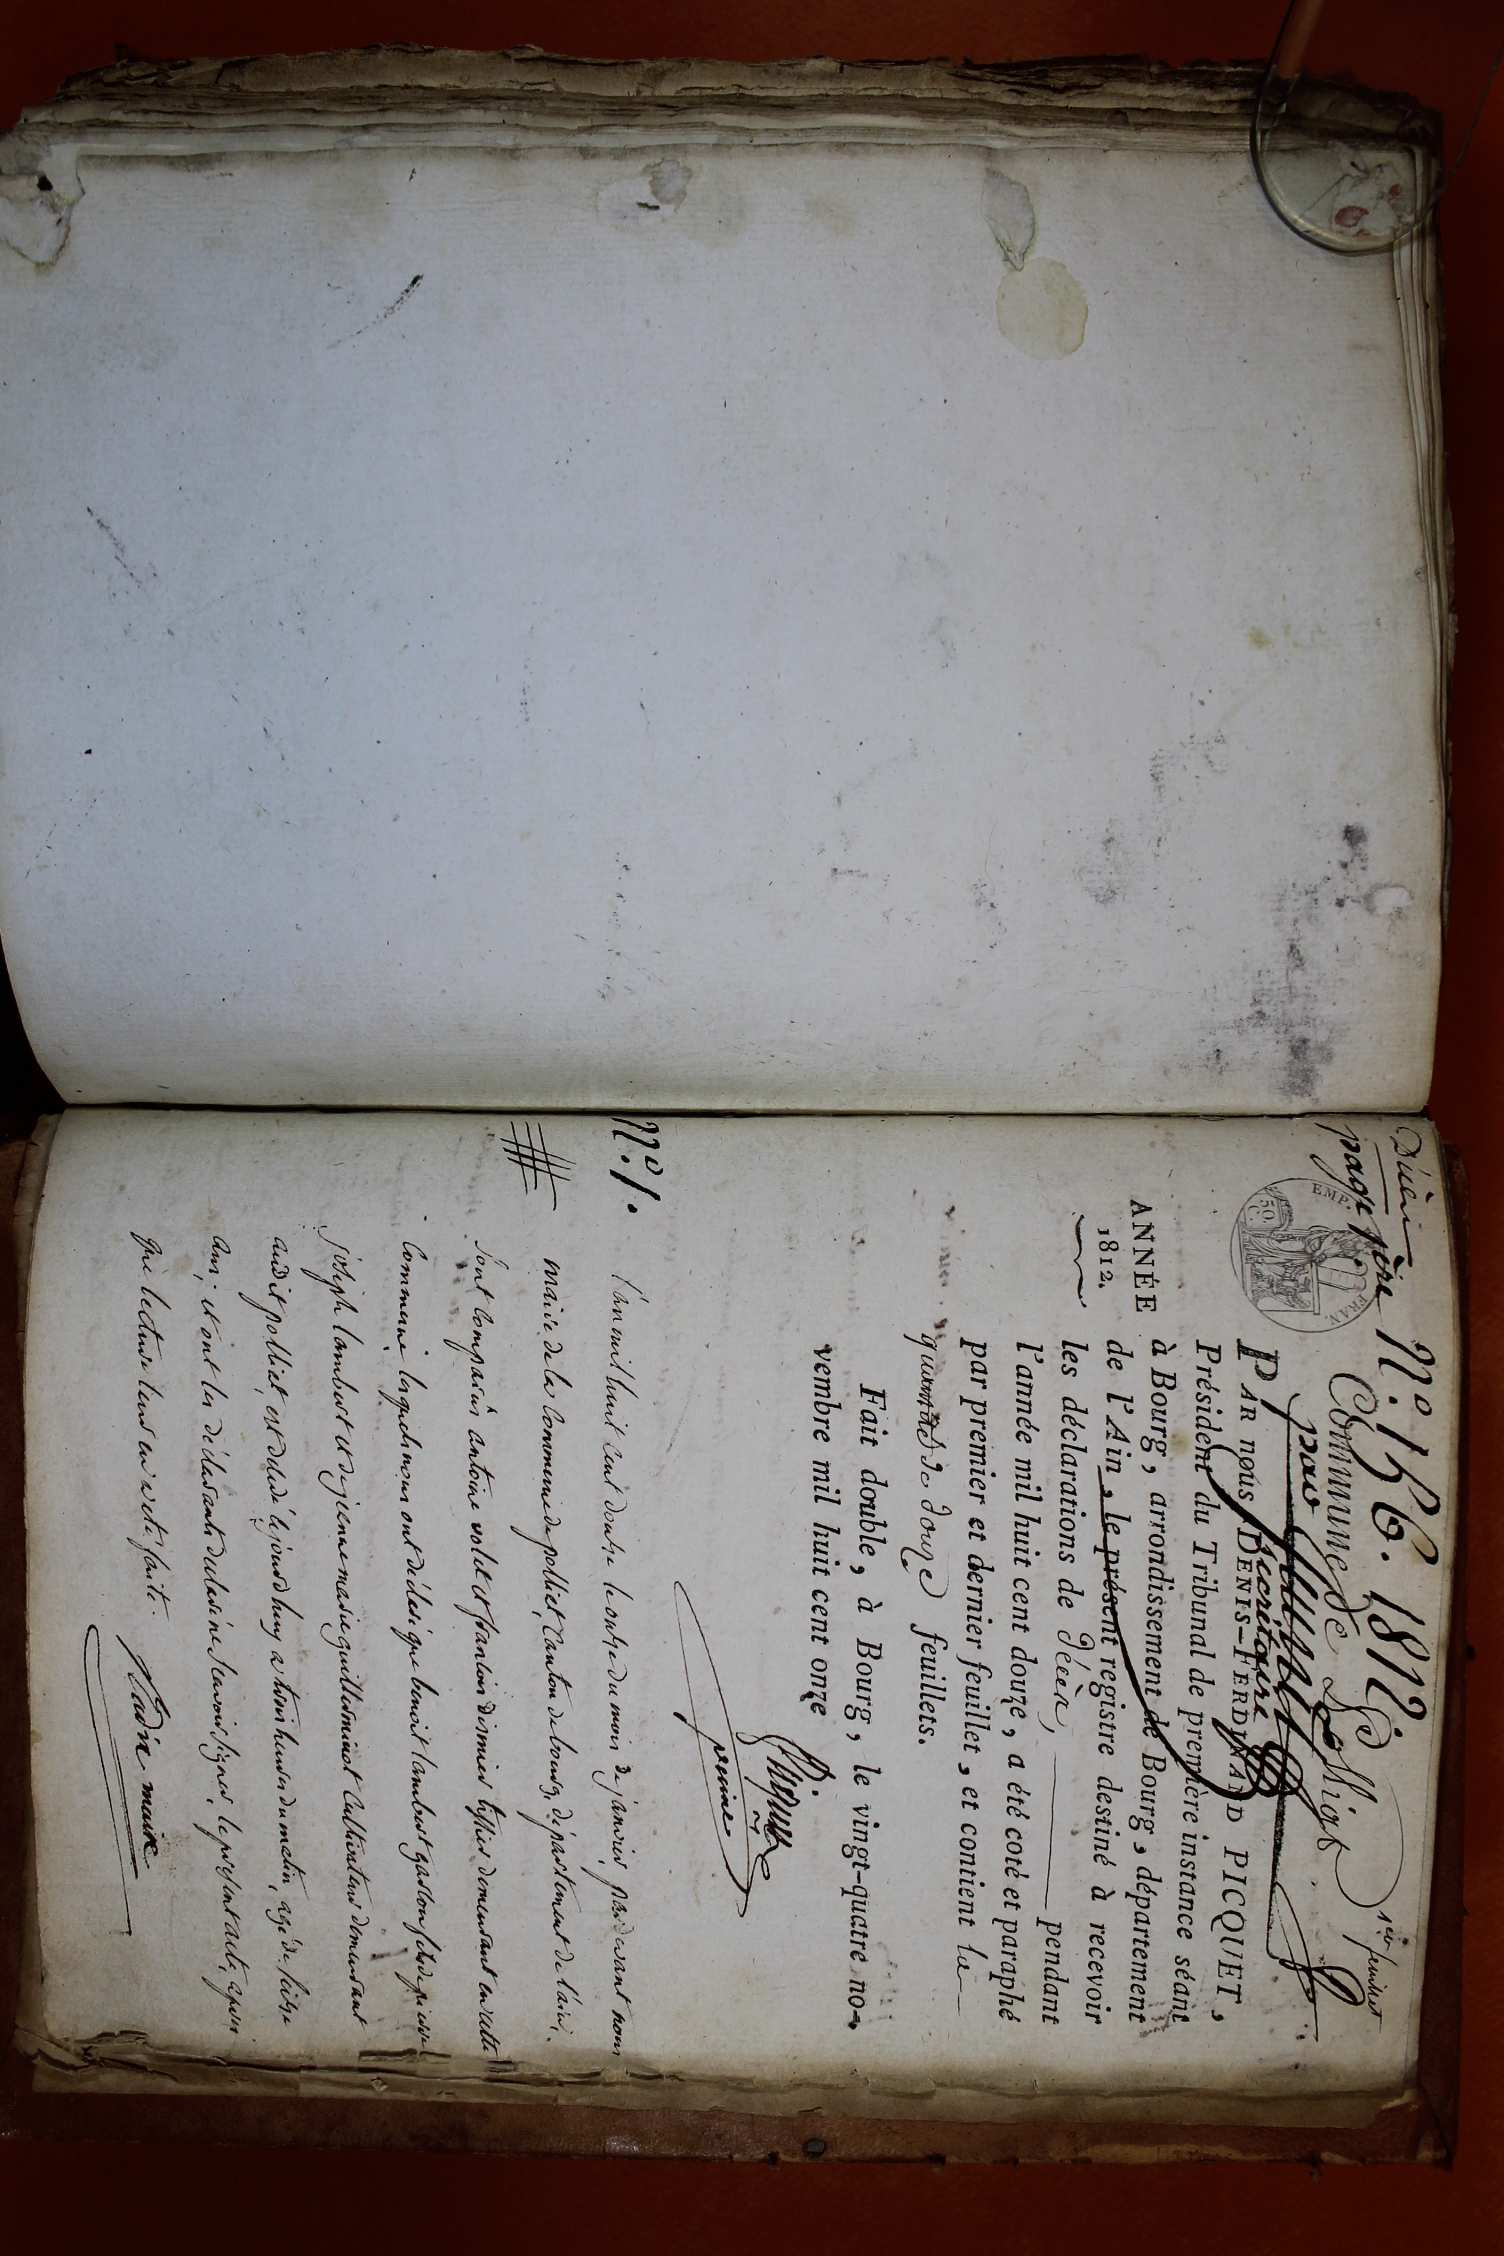 Décès
page 1ère N.º 166. 1812.
1er feuillet
Commune de Polliat
par
secrétaire
EMP. FRAN.
50. C.
PAR nous DENIS-FERDINAND PICQUET,
Président du Tribunal de première instance séant
ANNÉE
1812.
à Bourg, arrondissement de Bourg, département
de l'Ain, le présent registre destiné à recevoir
les déclarations de Décès, pendant
l'année mil huit cent douze, a été coté et paraphé
par premier et dernier feuillet, et contient la
quantité de douze feuillets.
Fait double, à Bourg, le vingt-quatre no-
vembre mil huit cent onze
Picquet
N.º 1.
L'an mil huit cent douze le onze du mois de janvier, pardevant nous
maire de la commune de polliat, canton de bourg, département de l'ain,
sont comparus antoine volet et francois disnier tissier demeurant en cette
commune, lesquels nous ont déclaré que benoit lambert garcon fils de pierre
joseph lambert et de jeanne marie guillerminot cultivateurs demeurant
audit polliat, est décédé le jourd'huy a trois heures du matin, agé de seize
ans, et ont les déclarants declaré ne scavoir signer, le présent acte, après
que lecture leur en a eté faite.
maire